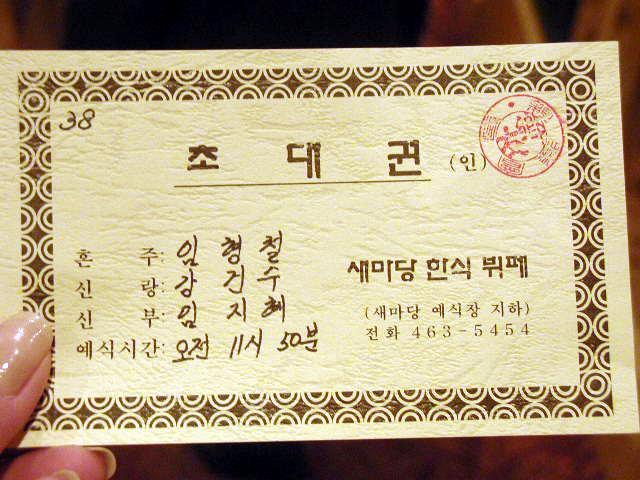 38
초 대 권 (인)
혼 주: 임 형 철
신 랑: 강 건 수
신 부: 임 지 혜
예식시간: 오전 11시 50분
새마당 한식 뷔페
(새마당 예식장 지하)
전화 463-5454